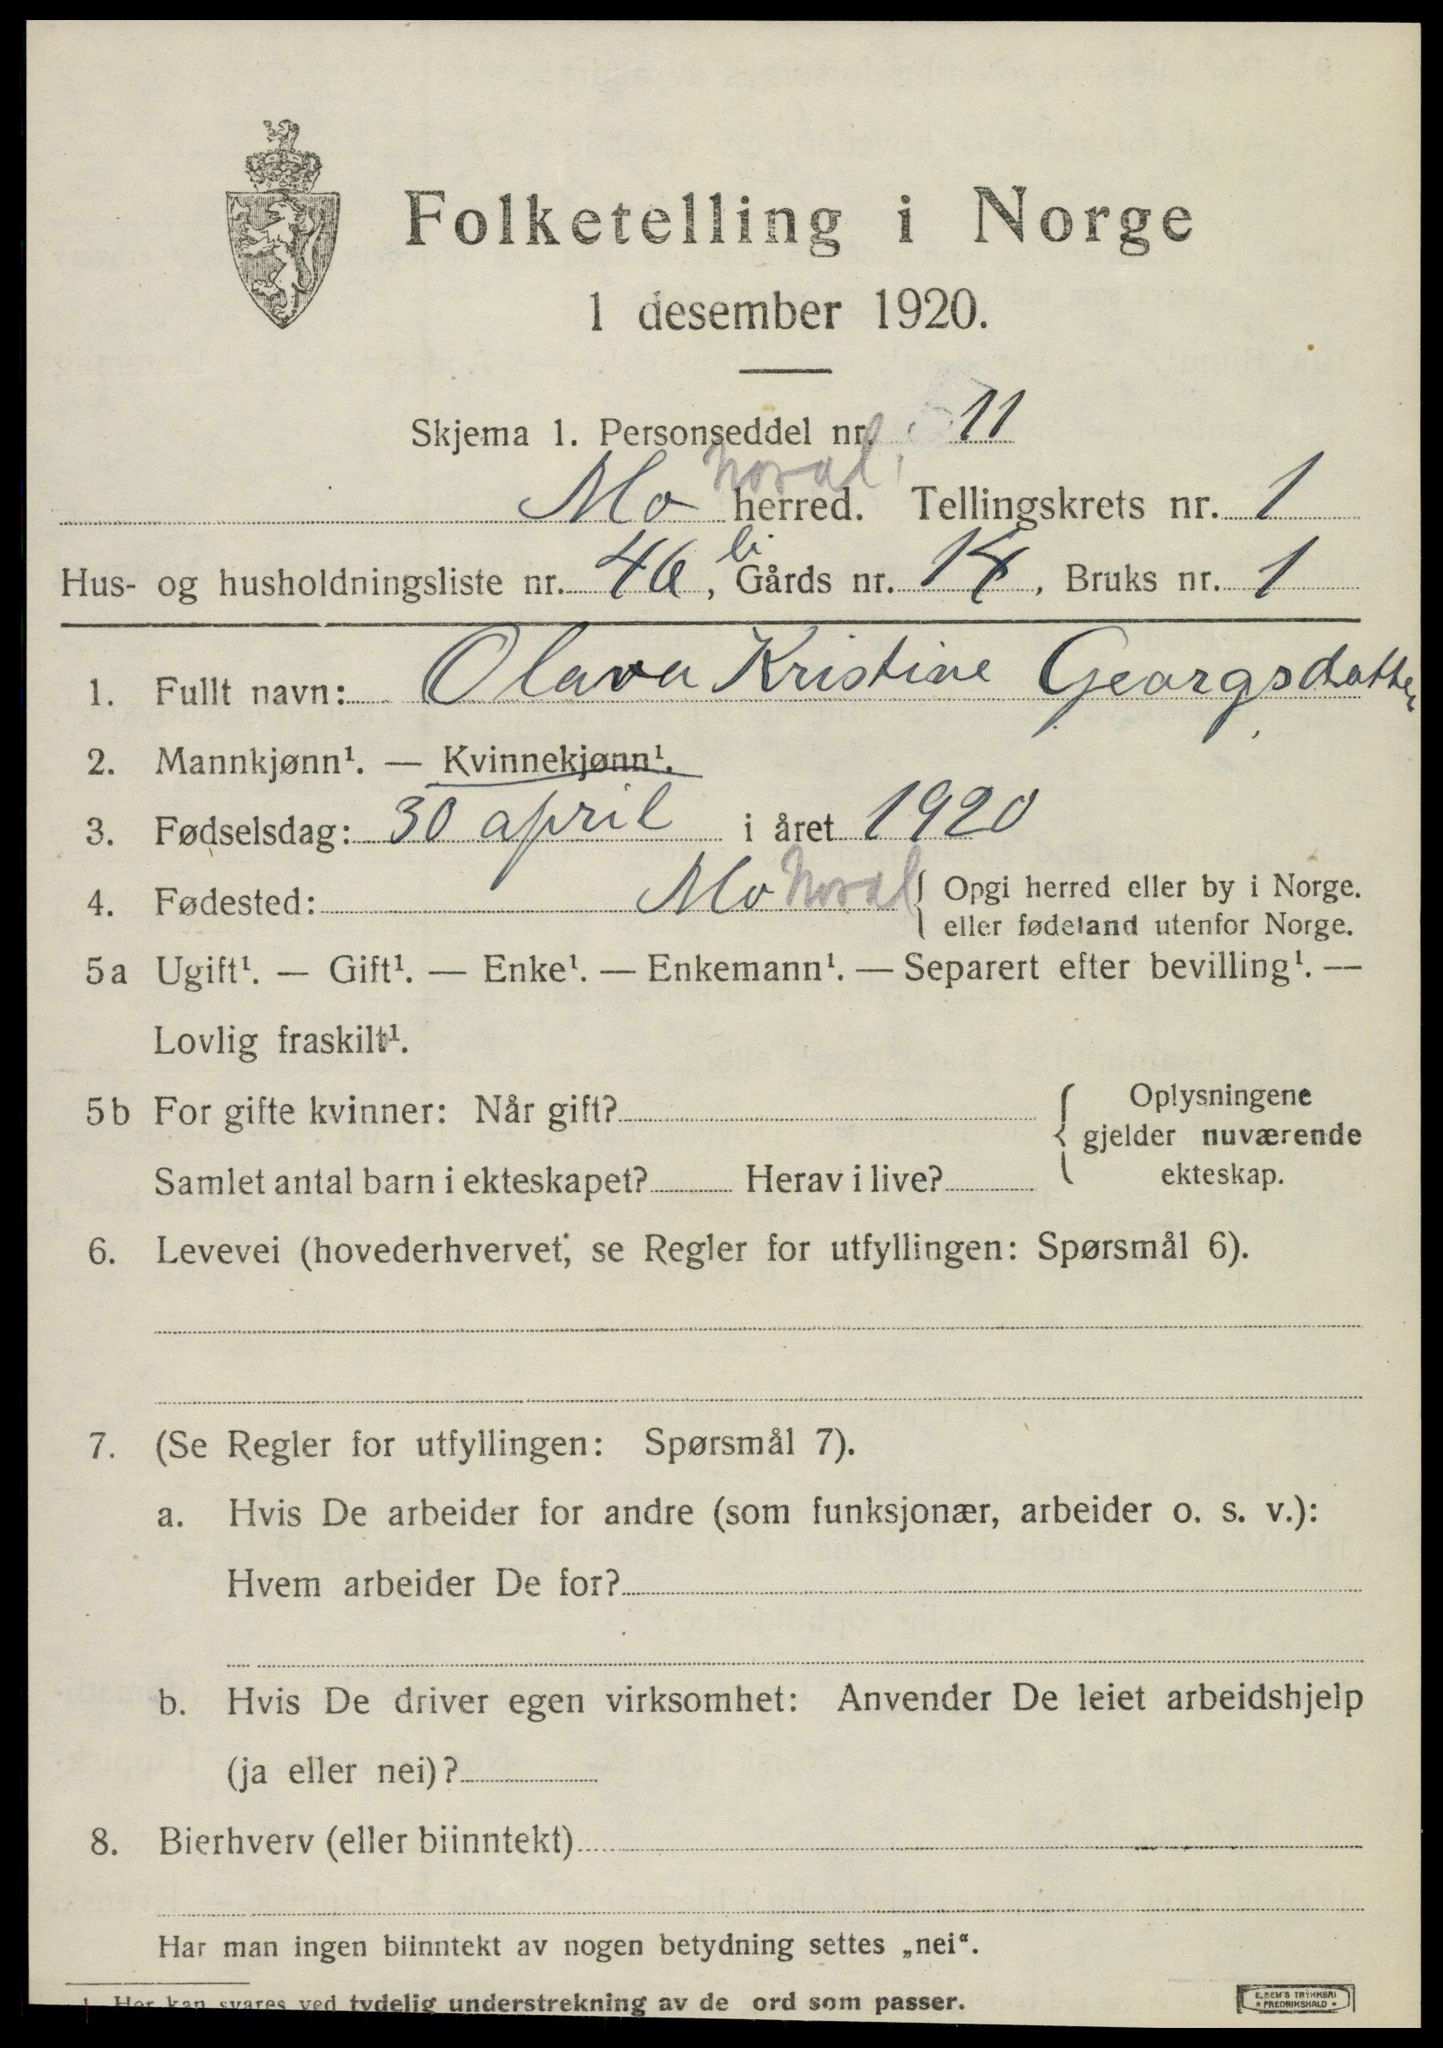 Folketelling i Norge
1 desember 1920.
Skjema 1. Personseddel nr. 11
Mo herred. Nordl. Tellingskrets nr. 1
Hus- og husholdningsliste nr. 46, bi Gårds nr. 14, Bruks nr. 1
1. Fullt navn: Olava Kristine Georgsdatter
2. Mannkjønn¹. — Kvinnekjønn¹.
3. Fødselsdag: 30 april i året 1920
4. Fødested: Mo Nordl { Opgi herred eller by i Norge.
eller fødeland utenfor Norge.
5a Ugift¹. — Gift¹. — Enke¹. — Enkemann¹. — Separert efter bevilling¹. —
Lovlig fraskilt¹.
5b For gifte kvinner: Når gift? { Oplysningene
gjelder nuværende
Samlet antal barn i ekteskapet? Herav i live? ekteskap.
6. Levevei (hovederhvervet; se Regler for utfyllingen: Spørsmål 6).
7. (Se Regler for utfyllingen: Spørsmål 7).
a. Hvis De arbeider for andre (som funksjonær, arbeider o. s. v.):
Hvem arbeider De for?
b. Hvis De driver egen virksomhet: Anvender De leiet arbeidshjelp
(ja eller nei)?
8. Bierhverv (eller biinntekt)
Har man ingen biinntekt av nogen betydning settes „nei“.
1. Her kan svares ved tydelig understrekning av de ord som passer.
E. SEM'S TRYKKERI
* FREDRIKSHALD *